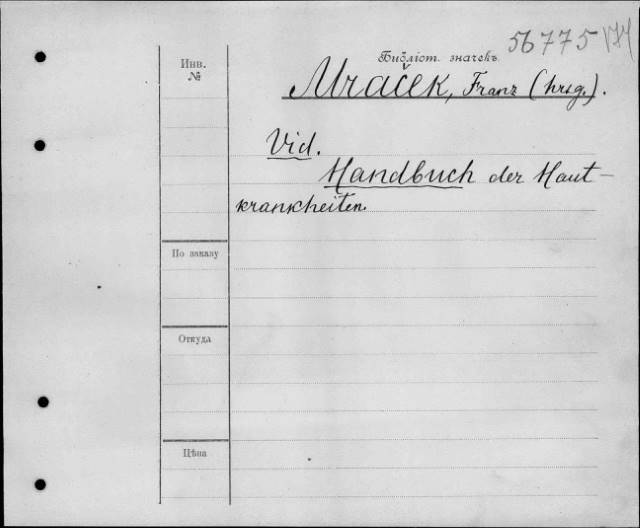 56775 174
Инв.
№
Библіот. значекъ
Mraček, Franz (hrsg.).
Vid.
Handbuch der Haut-
krankheiten.
По заказу
Откуда
Цѣна